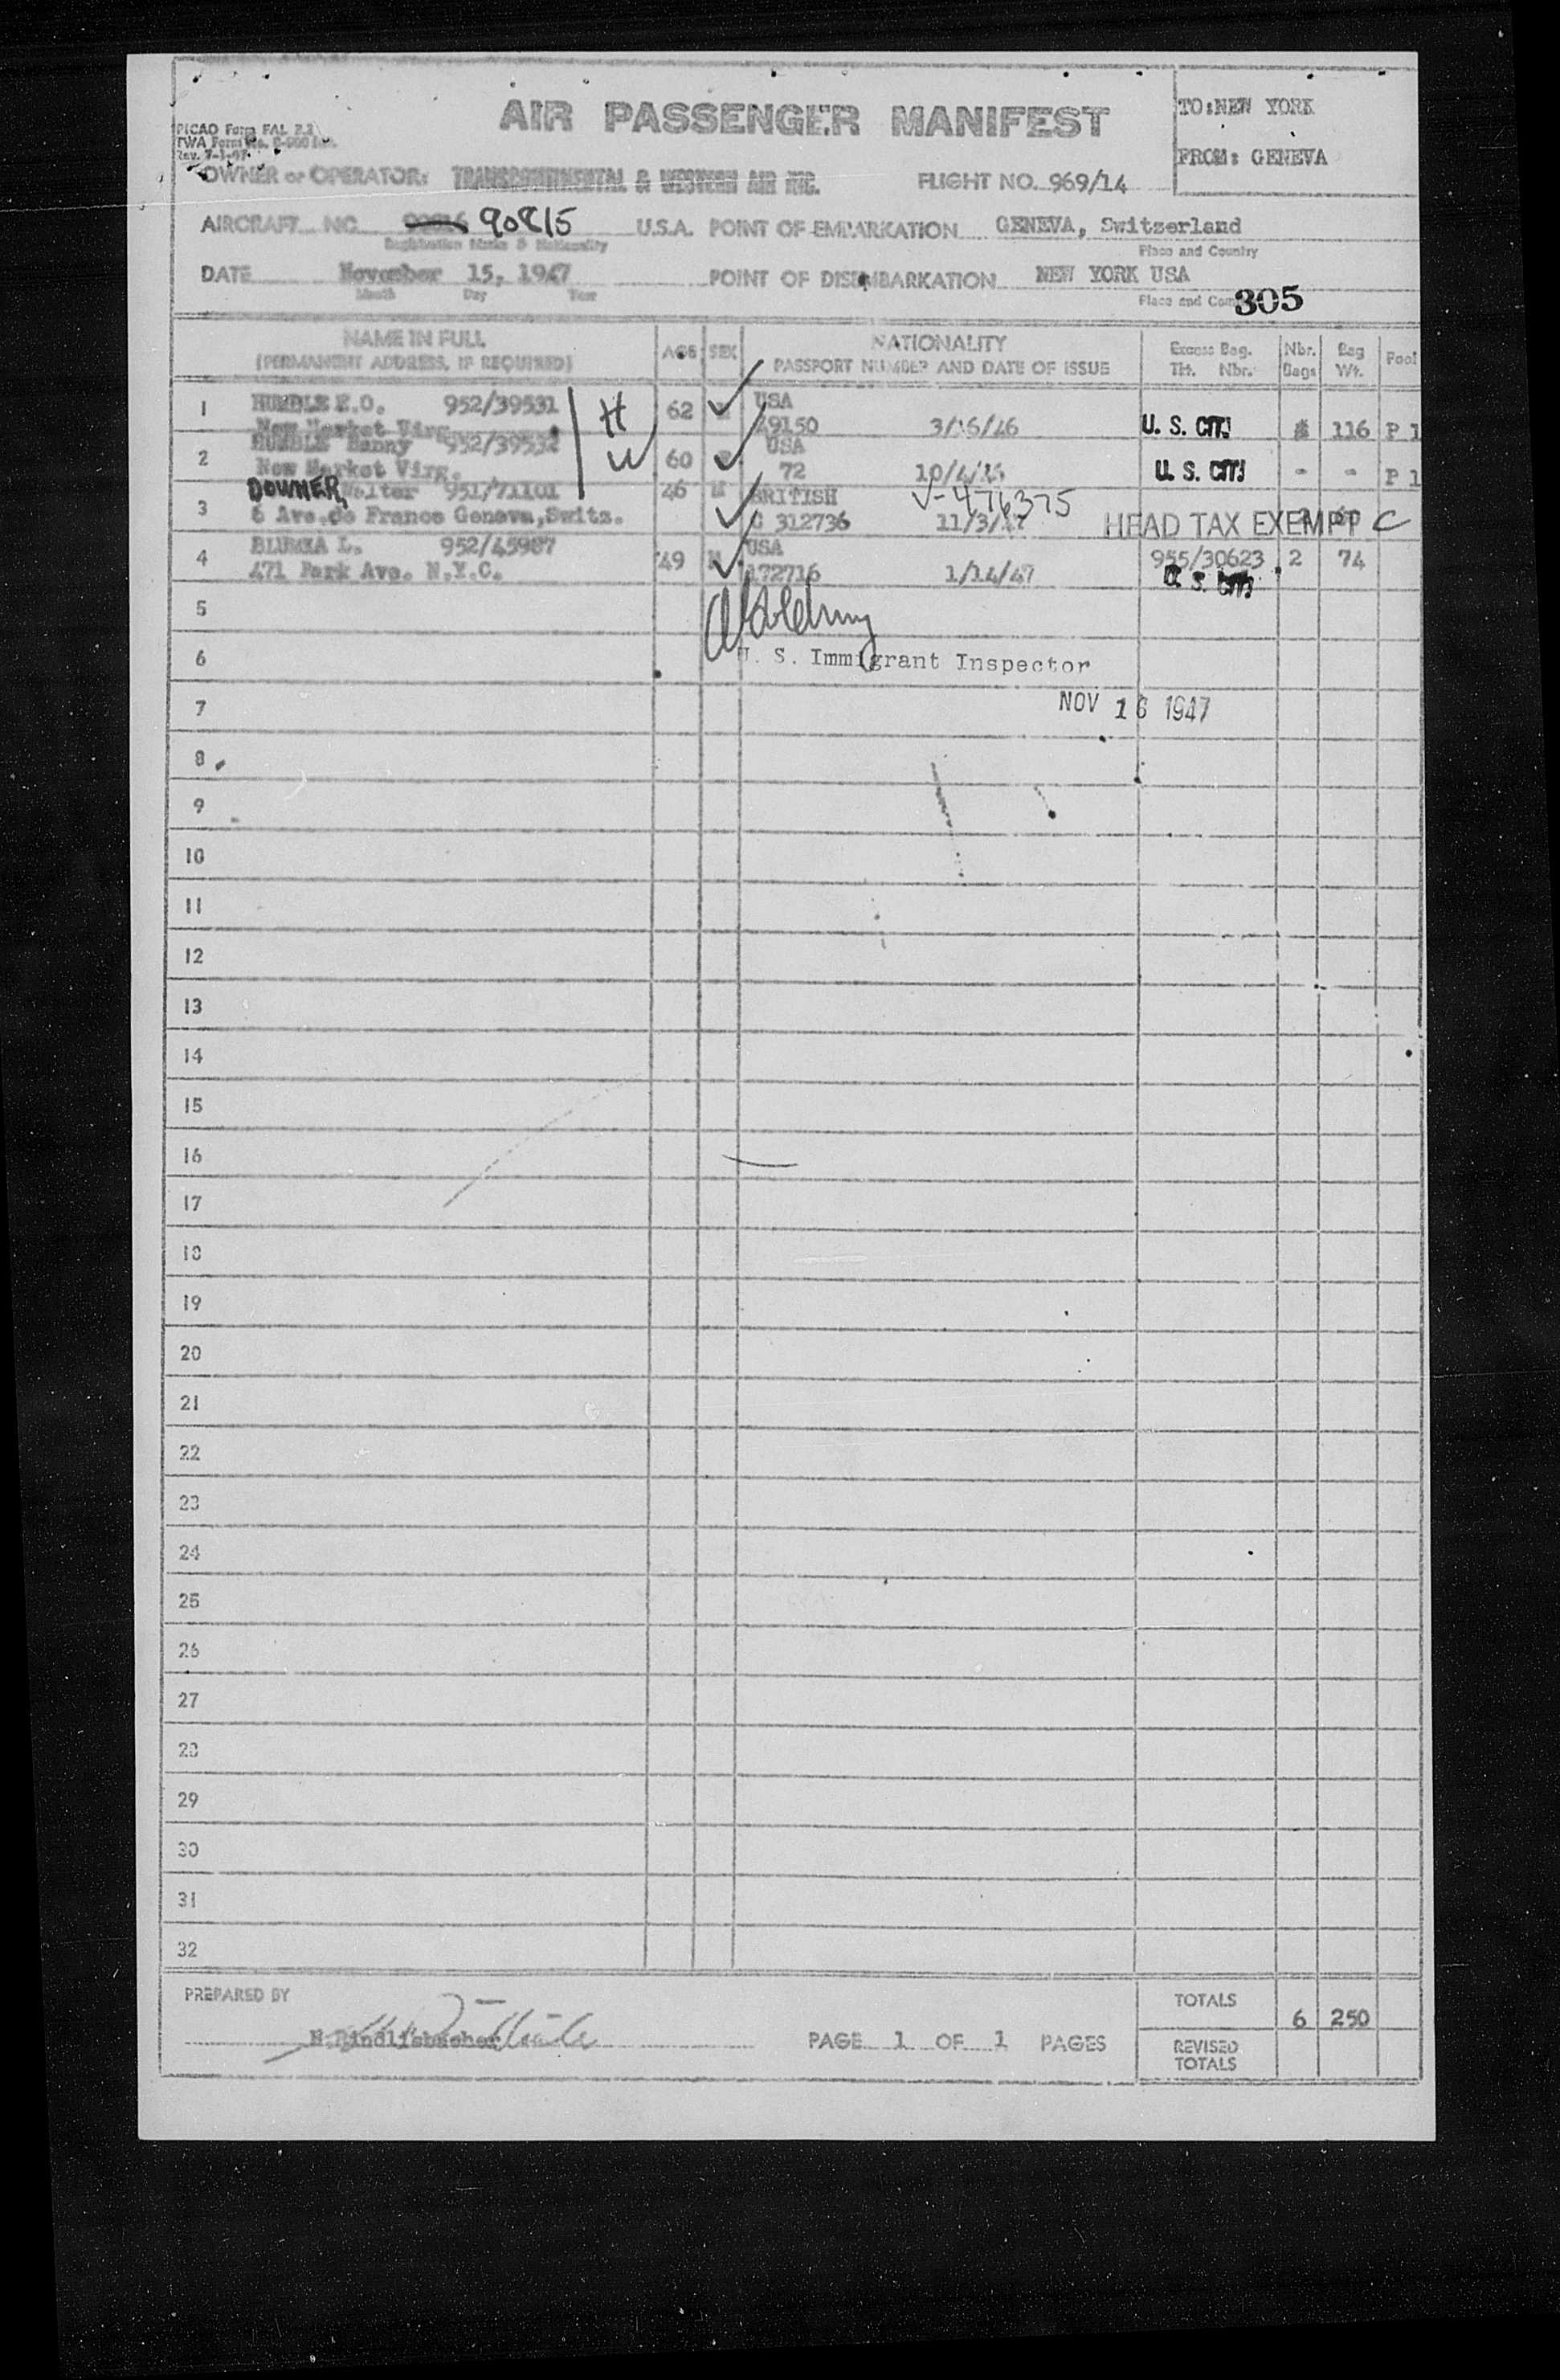 AIR PASSENGER MANIFEST
TO:NEW YORK
FROM: GENEVA
PICAO Form FAL
TWA Form No.
Rev. 7-1-47
OWNER or OPERATOR: TRANSCONTINENTAL & WESTERN AIR INC. FLIGHT NO. 969/14
AIRCRAFT NO. 90815 U.S.A. POINT OF EMBARKATION GENEVA, Switzerland
Registration Marks & Nationality Place and Country
DATE November 15, 1947 POINT OF DISEMBARKATION NEW YORK USA
Month Day Year Place and
305
NAME IN FULL (PERMANENT ADDRESS, IF REQUIRED) AGE SEX NATIONALITY PASSPORT NUMBER AND DATE OF ISSUE Excess Bag. Tkt. Nbr. Nbr. Bags Bag Wt. Pool
1 HUMBLE E.O. 952/39531 H 62 USA
New Market Virg. 49150 3/16/46 U. S. CITI 116 P 1
2 HUMBLE Hanny 952/39532 W 60 USA
New Market Virg. 72 U. S. CITI - - P 1
3 DOWNER Walter 951/71101 46 M BRITISH V-476375
6 Ave.de France Geneva,Switz. C 312736 11/3/47 HEAD TAX EXEMPT C
4 BLUMKA L. 952/45987 49 M USA 955/30623 2 74
471 Park Ave. N.Y.C. 172716 1/14/47 U. S. CITI
5
6 U. S. Immigrant Inspector
7 NOV 16 1947
8
9
10
11
12
13
14
15
16
17
18
19
20
21
22
23
24
25
26
27
28
29
30
31
32
PREPARED BY
TOTALS 6 250
PAGE 1 OF 1 PAGES
REVISED TOTALS